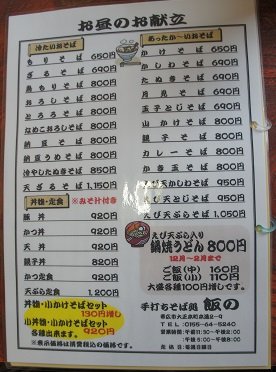 お昼のお献立
冷たいおそば
もりそば 650円
ざるそば 690円
鳥もりそば 800円
おろしそば 800円
とろろそば 800円
なめこおろしそば 800円
納豆そば 800円
納豆うめそば 800円
冷やしたぬきそば 850円
天ざるそば 1,150円
丼物・定食 ※みそ汁付き
豚丼 920円
かつ丼 920円
天丼 920円
親子丼 820円
かつ定食 920円
天ぷら定食 1,200円
丼物・小かけそばセット
130円増し
小丼物・小かけそばセット
各種出来ます。 920円
※表示価格は消費税込の価格です。
あったか〜いおそば
かけそば 650円
かしわそば
たぬきそば
月見そば
玉子とじそば
山かけそば 800円
親子そば
カレーそば
かき玉そば
えび天かしわそば
えび天とじそば
えび天ぷらそば 1,050円
えび天ぷら入り
鍋焼うどん 800円
12月〜2月まで
ご飯(中) 160円
ご飯(小) 110円
大盛各種100円増しです。
手打ちそば処 飯の
TEL 0155-64-5240
営業時間 午前11:30〜午後2:00